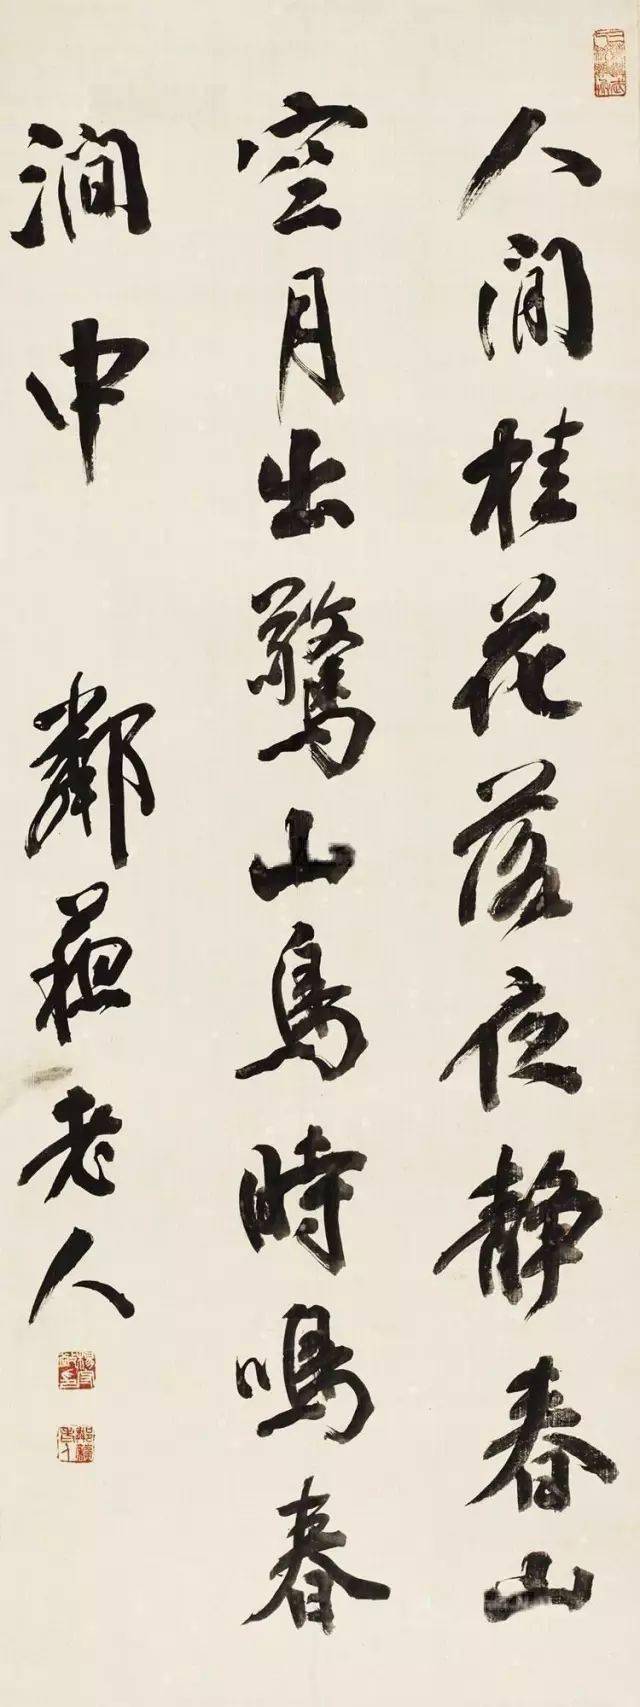 人間桂花落夜静春山
空月出驚山鳥時鳴春
澗中　鄰蘇老人